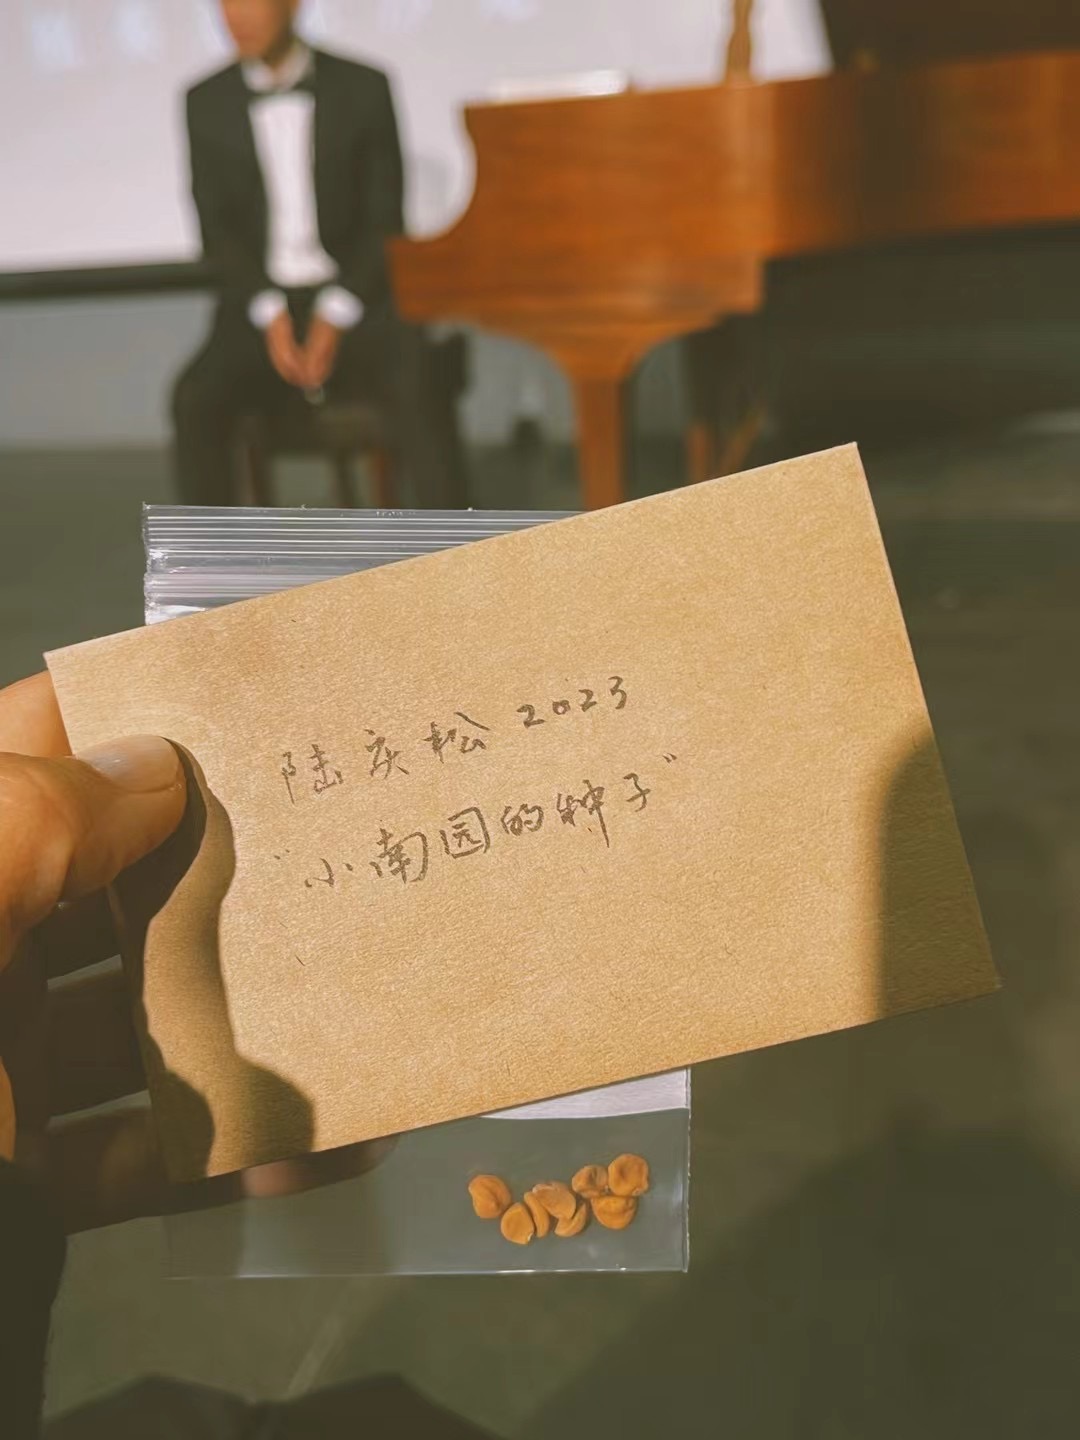 陆庆松 2023
“小南园的种子”